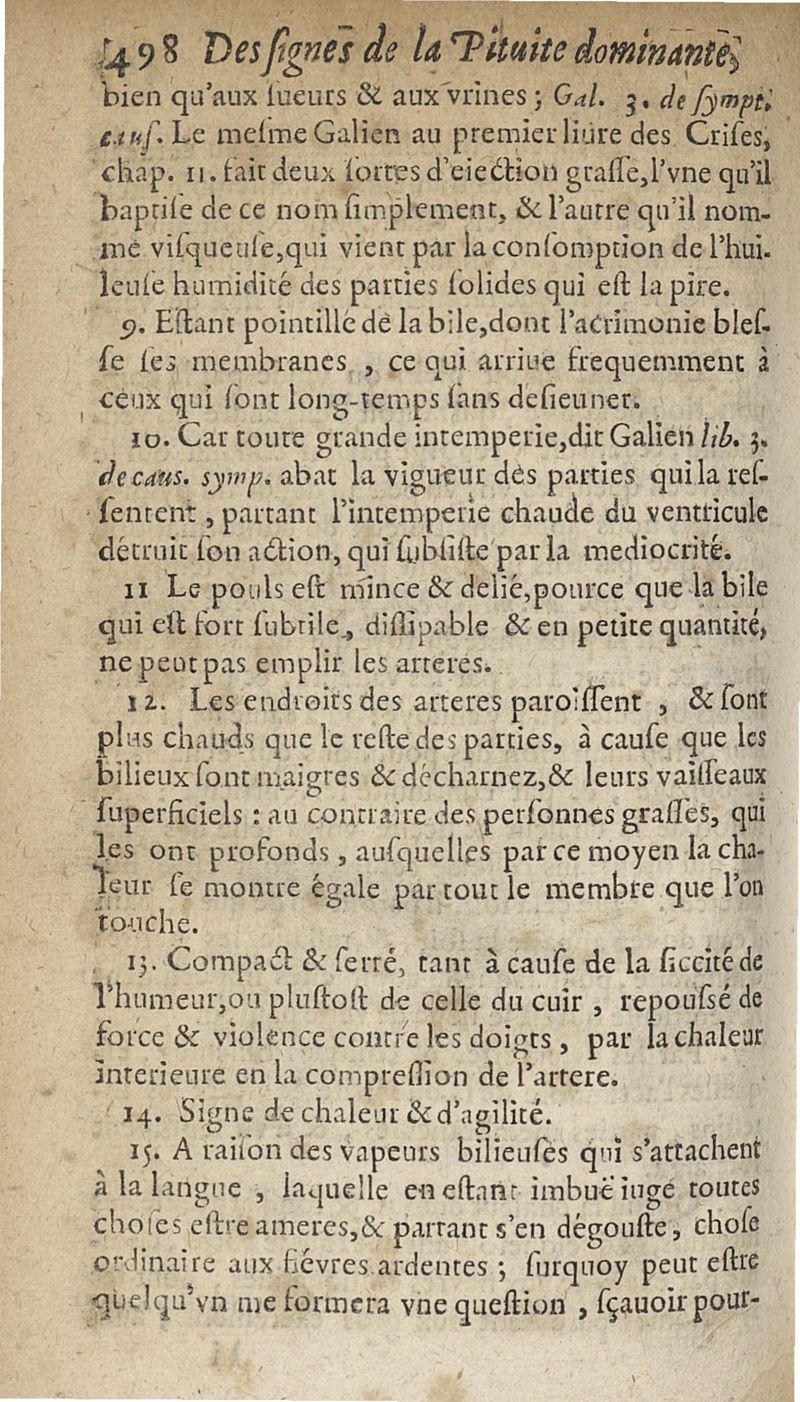 498 Des ſignes de la Pituite dominante,
bien qu'aux ſueurs & aux vrines ; Gal. 3. de ſympt.
cauſ. Le meſme Galien au premier liure des Criſes,
chap. 11. fait deux ſortes d'eiection graſſe, l'vne qu'il
baptiſe de ce nom ſimplement, & l'autre qu'il nom-
me viſqueuſe, qui vient par la conſomption de l'hui-
leuſe humidité des parties ſolides qui eſt la pire.
9. Eſtant pointillé de la bile, dont l'acrimonie bleſ-
ſe ſes membranes , ce qui arriue frequemment à
ceux qui ſont long-temps ſans deſieuner.
10. Car toute grande intemperie, dit Galien lib. 3.
de caus. symp. abat la vigueur des parties qui la reſ-
ſentent , partant l'intemperie chaude du ventricule
détruit ſon action, qui ſubſiſte par la mediocrité.
11 Le pouls eſt mince & delié, pource que la bile
qui eſt fort ſubtile, diſſipable & en petite quantité,
ne peut pas emplir les arteres.
12. Les endroits des arteres paroiſſent , & ſont
plus chauds que le reſte des parties, à cauſe que les
bilieux ſont maigres & décharnez, & leurs vaiſſeaux
ſuperficiels : au contraire des perſonnes graſſes, qui
les ont profonds , auſquelles par ce moyen la cha-
leur ſe montre égale par tout le membre que l'on
touche.
13. Compact & ſerré, tant à cauſe de la ſiccité de
l'humeur, ou pluſtoſt de celle du cuir , repouſſé de
force & violence contre les doigts , par la chaleur
interieure en la compreſſion de l'artere.
14. Signe de chaleur & d'agilité.
15. A raiſon des vapeurs bilieuſes qui s'attachent
à la langue , laquelle en eſtant imbuë iuge toutes
choſes eſtre ameres, & partant s'en dégouſte, choſe
ordinaire aux fiévres ardentes ; ſurquoy peut eſtre
quelqu'vn me formera vne queſtion , ſçauoir pour-